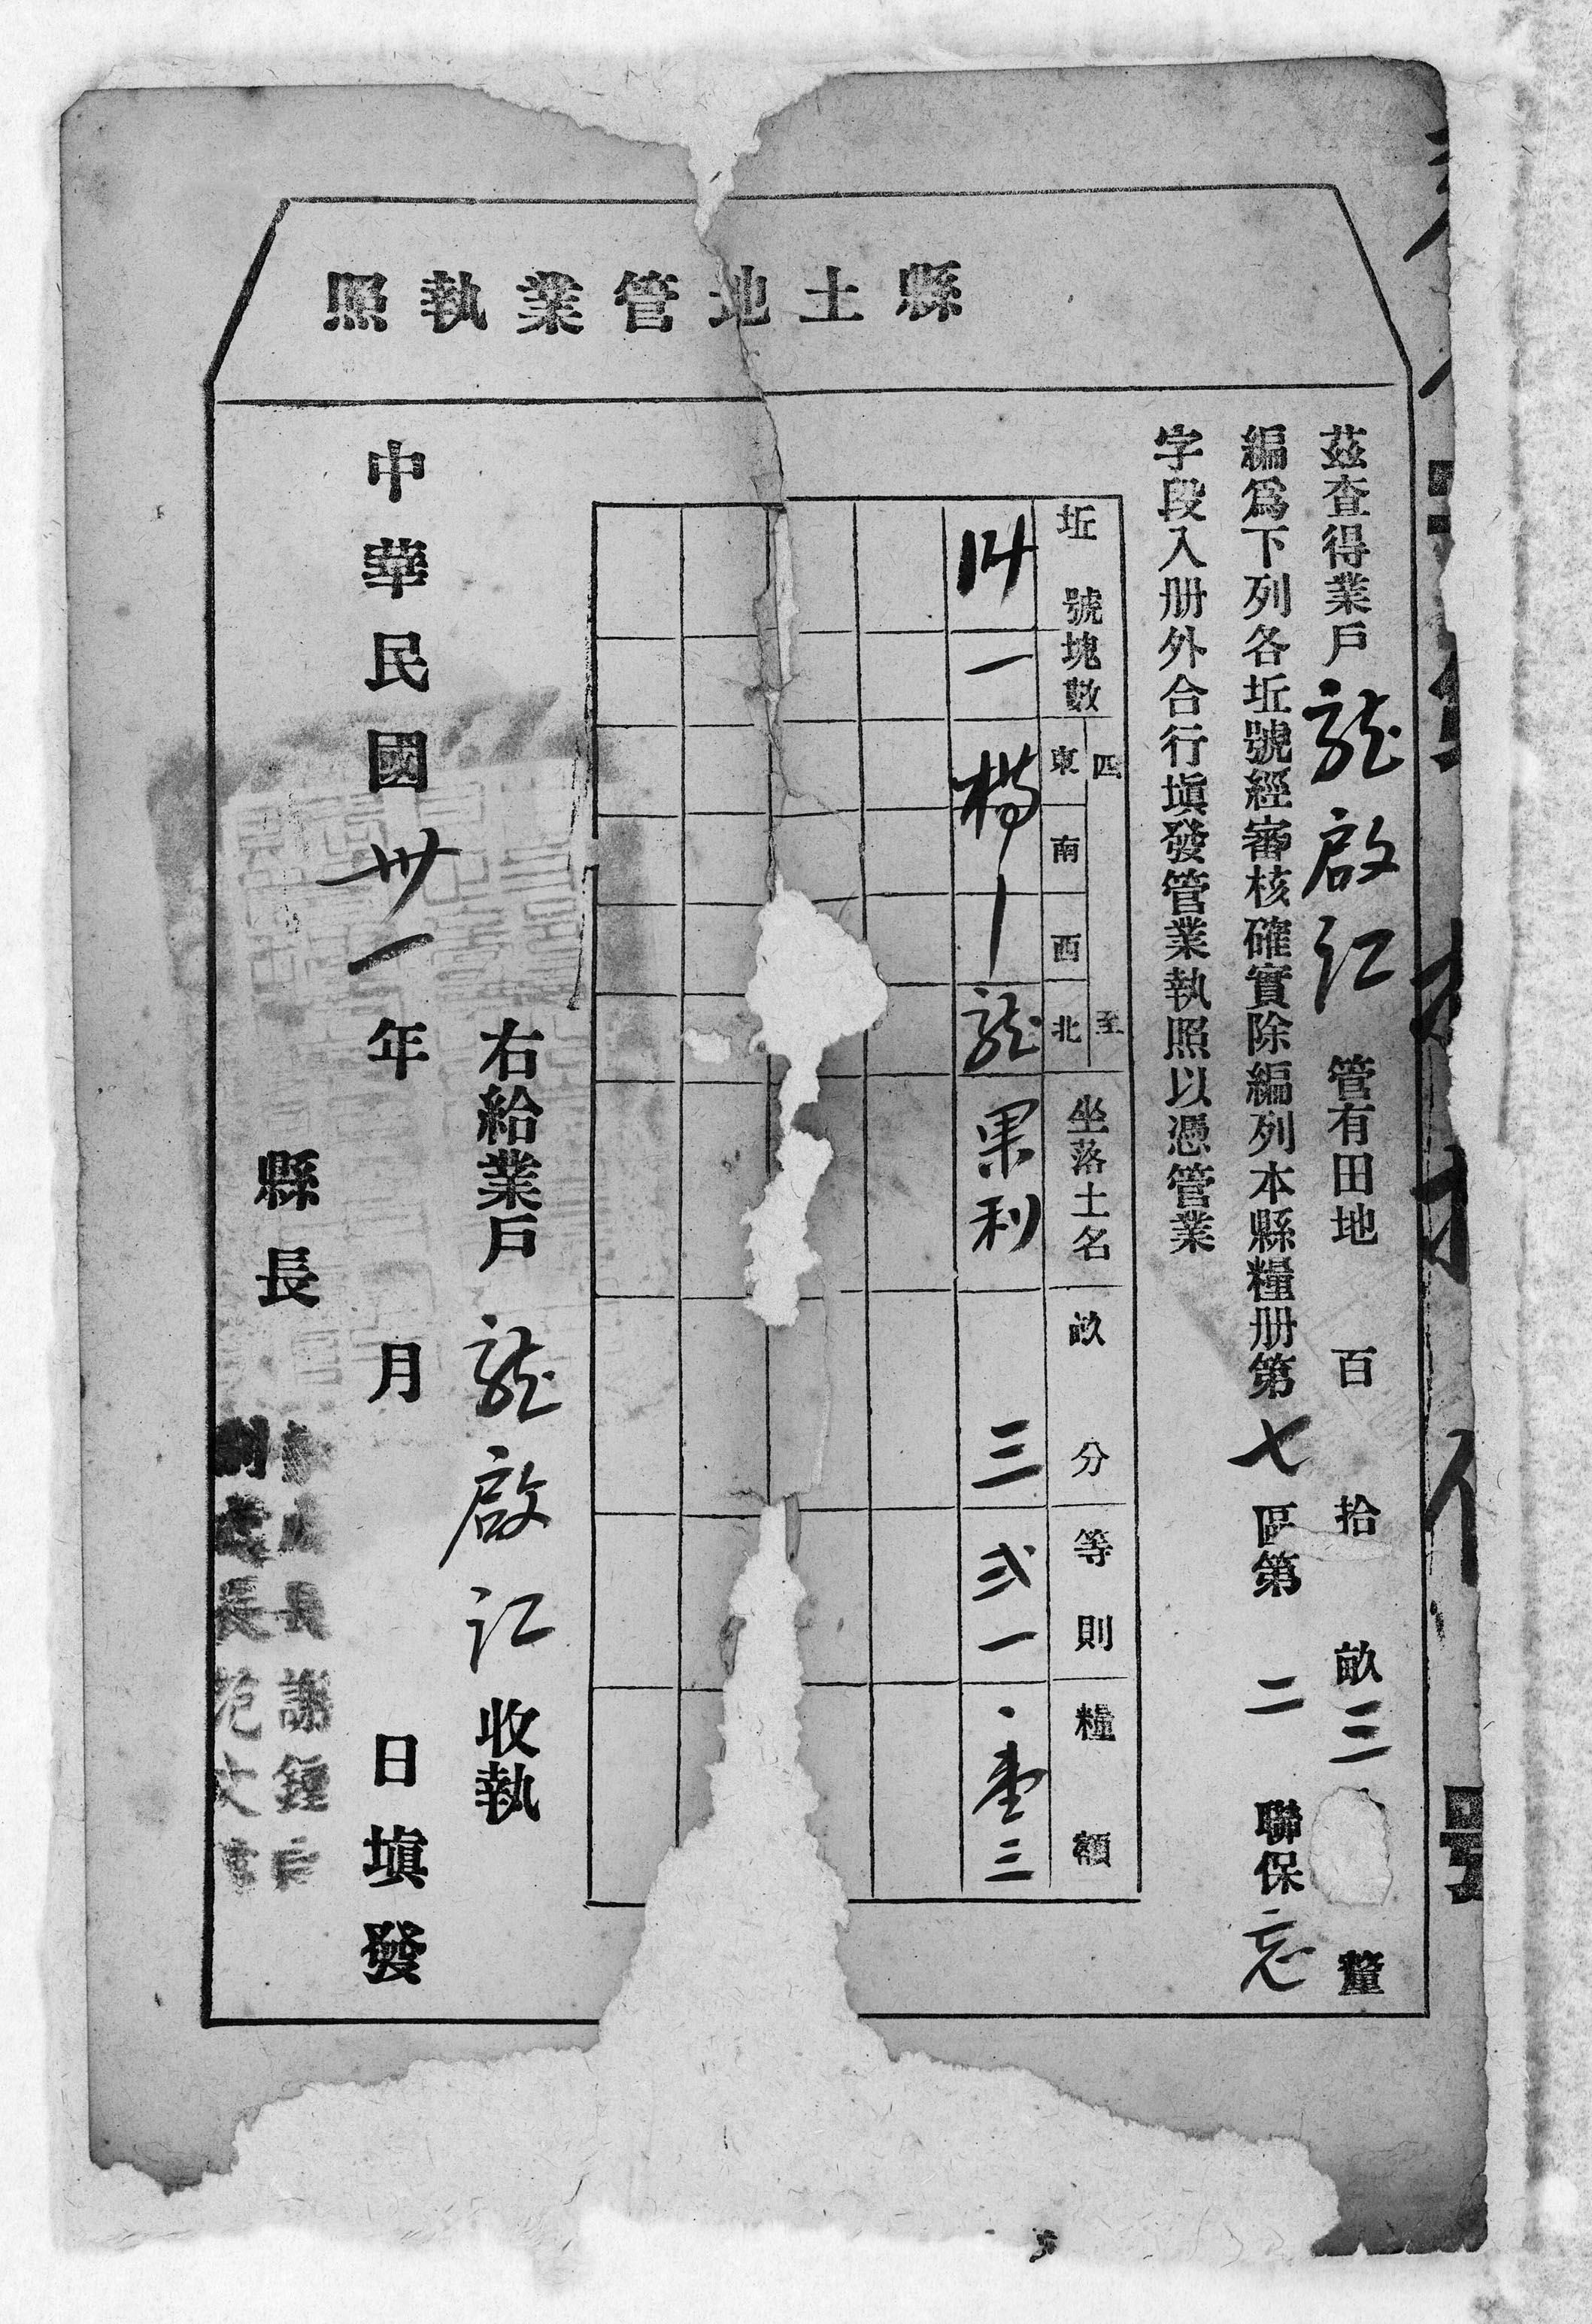 縣土地管業執照
茲查得業戶龍啟江管有田地百拾畝三釐
編爲下列各坵號經審核確實除編列本縣糧册第七區第二聯保忘
字段入册外合行填發管業執照以憑管業
坵號 塊數 四至 東 南 西 北 坐落土名 畝分 等則 糧額
14 一 楊 | 龍 果利 三 弍一 ·壹三
右給業戶龍啟江收執
中華民國卅一年月日填發
縣長
長謝鍾
長范文